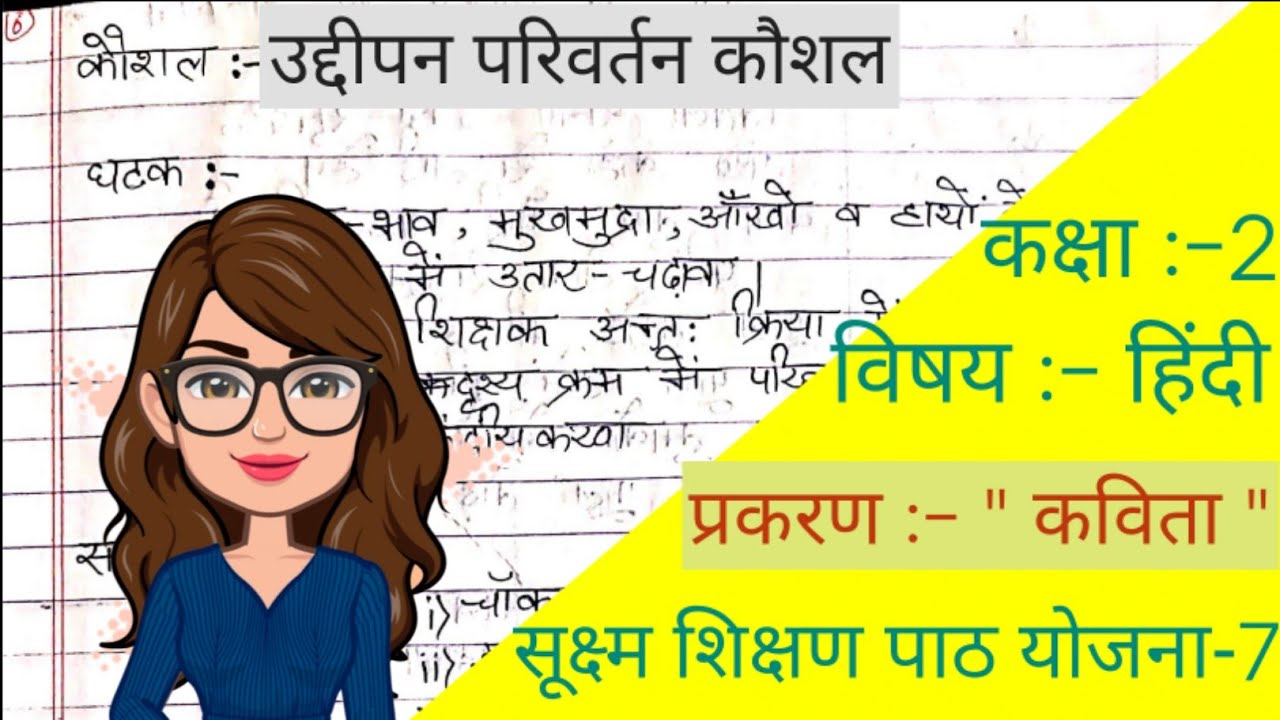 6
कौशल :- उद्दीपन परिवर्तन कौशल
घटक :-
-भाव, मुखमुद्रा, आँखो व हाथों
में उतार-चढ़ाव ।
शिक्षक अन्तः क्रिया में
क्रम में
i) चॉक
ii)
कक्षा :-2
विषय :- हिंदी
प्रकरण :- " कविता "
सूक्ष्म शिक्षण पाठ योजना-7